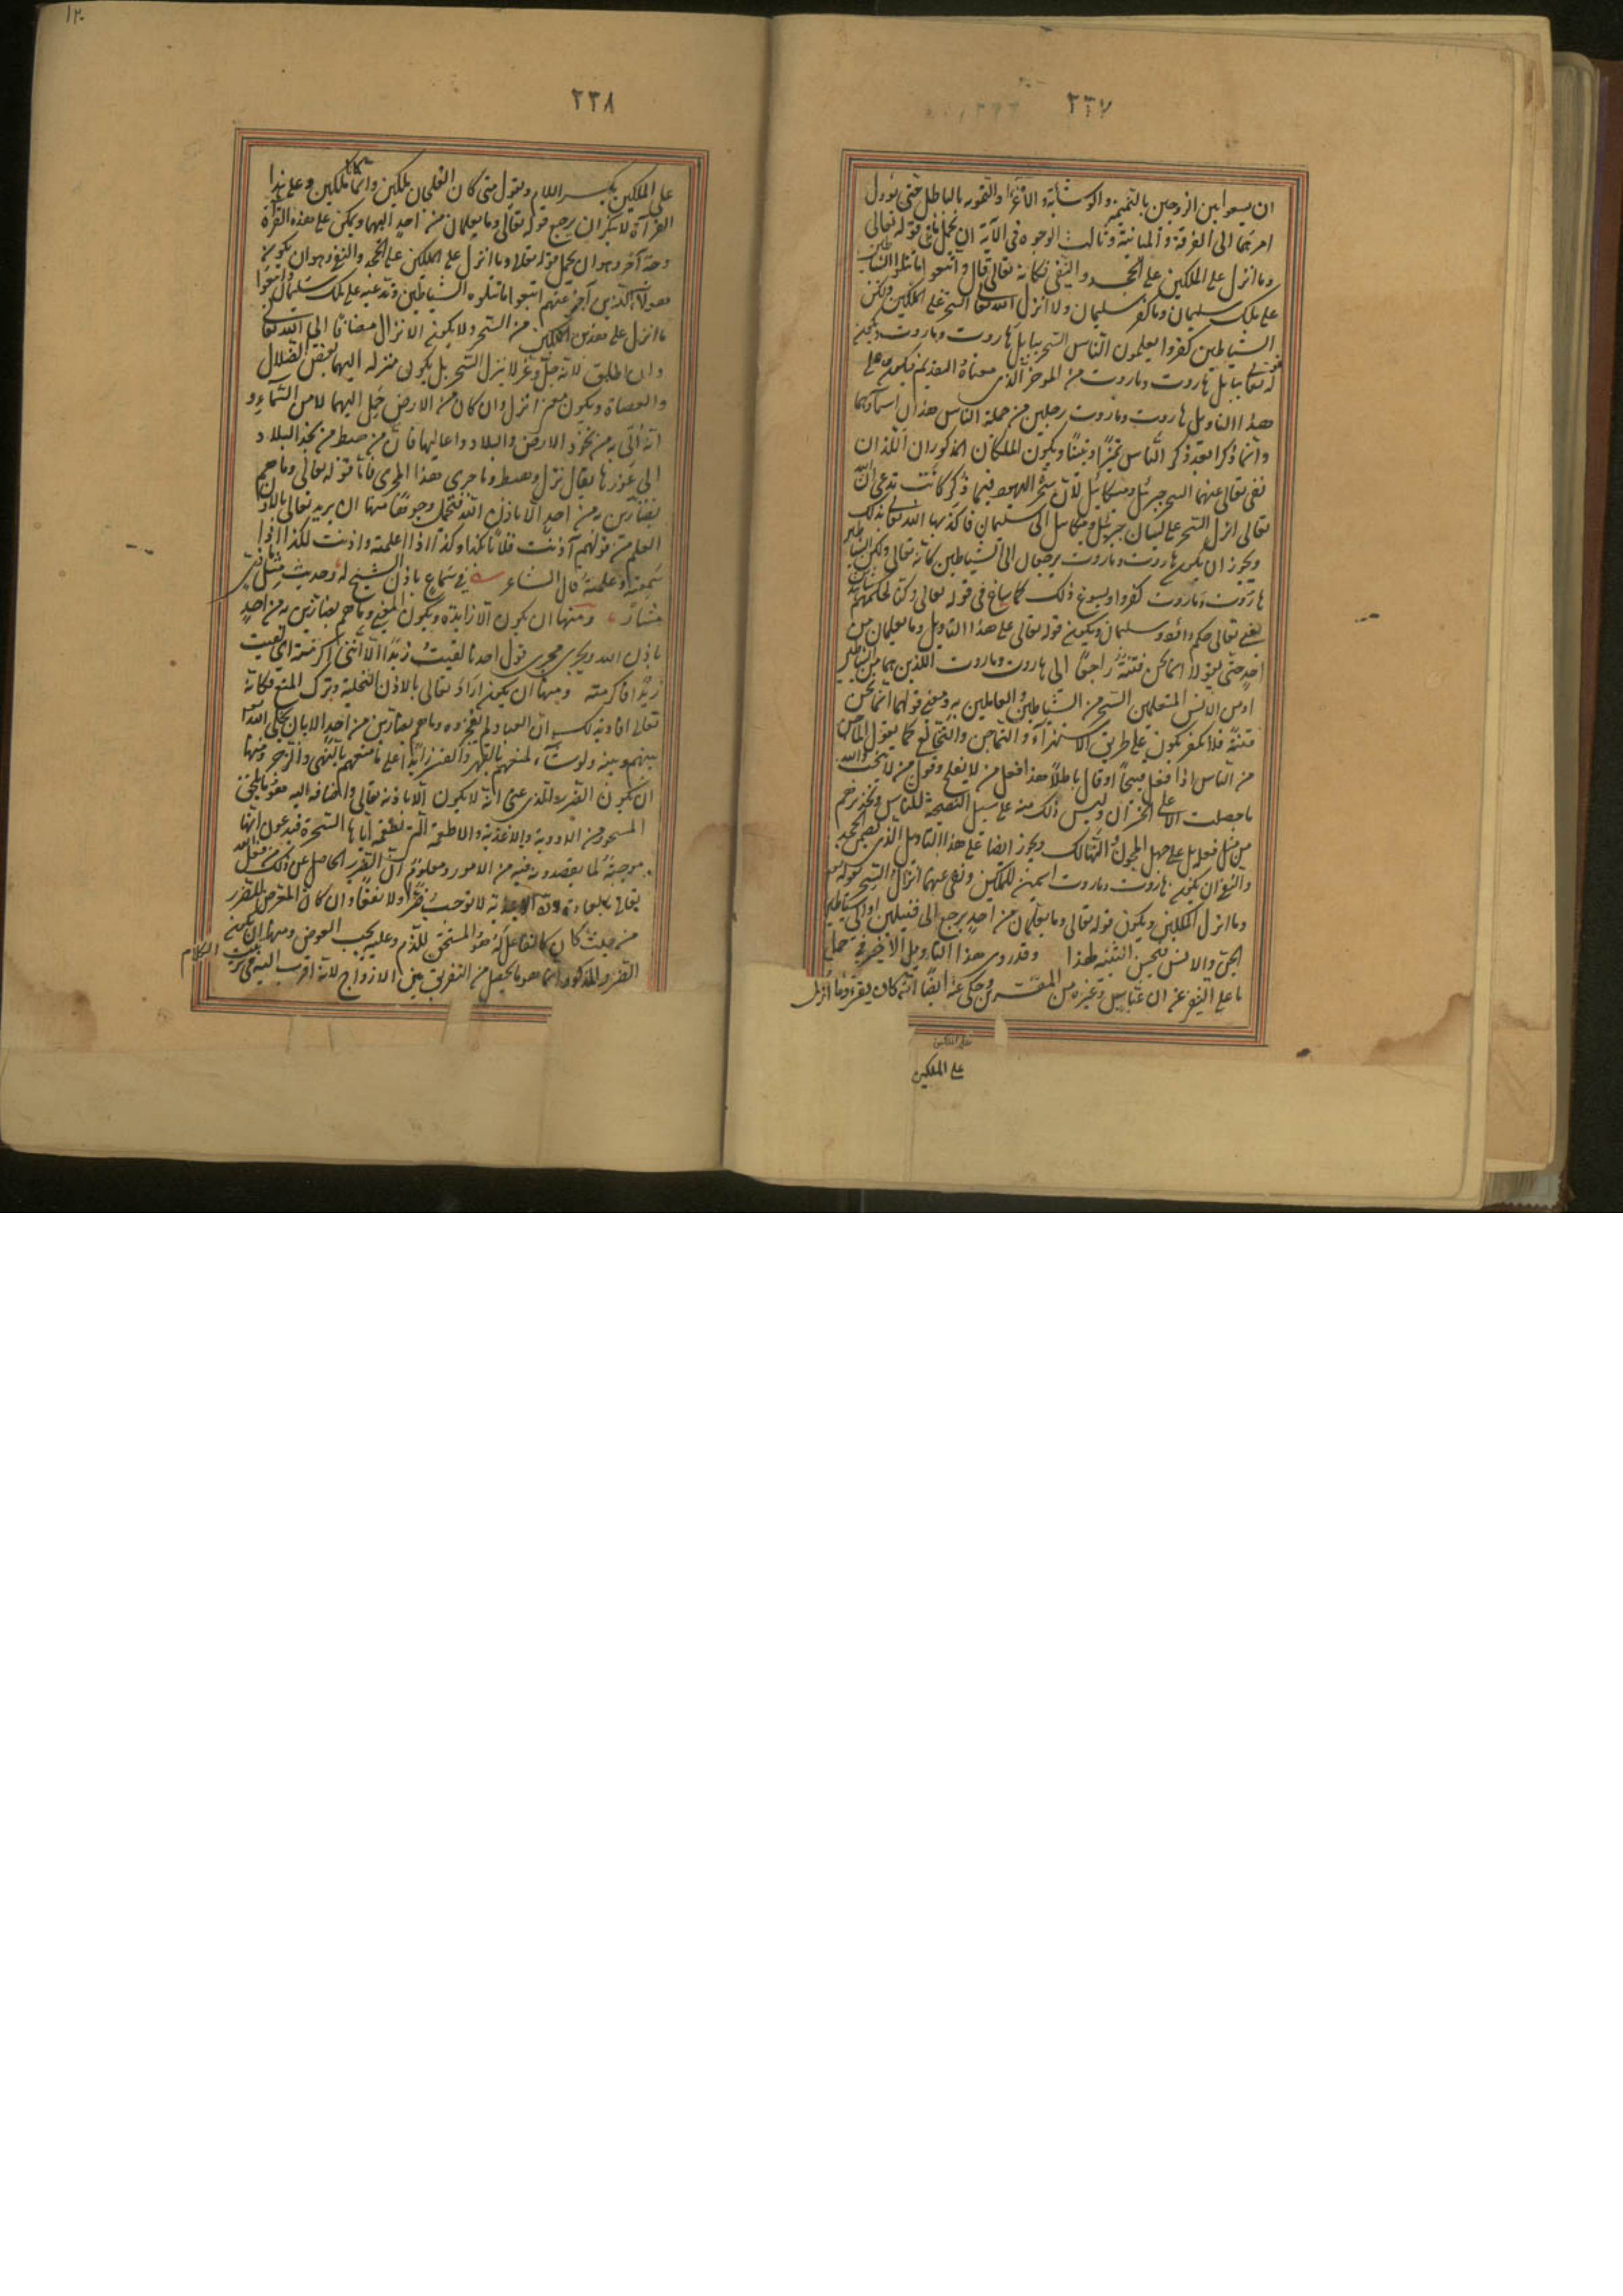 ٢٣٧
ان يسعوا بين الزوجين بالنميمة والوشاية والاغراء والتمويه بالباطل حتى يؤول
امرهما الى الفرقة والمباينة وثالث الوجوه فى الآية ان تحمل ما فى قوله تعالى
وما انزل على الملكين على الجحد والنفى فكانه تعالى قال واتبعوا ما تتلوا الشياطين
على ملك سليمان وما كفر سليمان ولا انزل الله تعالى السحر على الملكين ولكن
الشياطين كفروا يعلمون الناس السحر ببابل هاروت وماروت ويكون
قوله تعالى ببابل هاروت وماروت من المؤخر الذى معناه التقديم ويكون على
هذا التاويل هاروت وماروت رجلين من جملة الناس هذان اسماؤهما
وانما ذكرا بعد ذكر الناس تمييزا وتبيينا ويكون الملكان المذكوران اللذان
نفى تعالى عنهما السحر جبرئيل وميكائيل لان سحرة اليهود فيما ذكر كانت تدعى ان الله
تعالى انزل السحر على لسان جبرئيل وميكائيل الى سليمان فاكذبها الله تعالى بذلك
ويجوز ان يكون هاروت وماروت يرجعان الى الشياطين كانه تعالى ولكن الشياطين
هاروت وماروت كفروا ويسوغ ذلك كما ساغ فى قوله تعالى وكنا لحكمهم شاهدين
يعنى تعالى حكم داؤد وسليمان ويكون قوله تعالى على هذا التاويل وما يعلمان من
احد حتى يقولا انما نحن فتنة راجعا الى هاروت وماروت اللذين هما من الشياطين
او من الانس المتعلمين السحر من الشياطين والعاملين به ومعنى قولهما انما نحن
فتنة فلا تكفر يكون على طريق الاستهزاء والتماجن والتخالع كما يقول الماجن
من الناس اذا فعل قبيحا او قال باطلا هذا فعل من لا يفلح وقول من لا ينجب والله
ما حصلت الا على الخسران وليس ذلك منه على سبيل النصيحة للناس وتحذيرهم
من مثل فعله بل على جهة المجون والتهالك ويجوز ايضا على هذا التاويل الذى يضمن الجحد
والنفى ان يكون هاروت وماروت اسمين للملكين ونفى عنهما انزال السحر بقوله تعالى
وما انزل على الملكين ويكون قوله تعالى وما يعلمان من احد يرجع الى قبيلتين او الى شياطين
الجن والانس فتحسن التثنية لهذا وقد روى هذا التاويل الاخير فى حمل
ما على النفى عن ابن عباس وغيره من المفسرين وحكى عنه ايضا انه كان يقرء وما انزل
على الملكين
على الملكين
٢٣٨
على الملكين بكسر اللام ويقول متى كان العلجان ملكين وانما كانا ملكين وعلى هذا
القراءة لا ينكر ان يرجع قوله تعالى وما يعلمان من احد اليهما ويمكن على هذه القراءة
وجه آخر وهو ان يحمل قوله تعالى وما انزل على الملكين على الجحد والنفى وهو ان يكون
هؤلاء الذين اخبر عنهم اتبعوا ما تتلوه الشياطين وتدعيه على ملك سليمان واتبعوا
ما انزل على هذين الملكين من السحر ولا يكون الانزال مضافا الى الله تعالى
وان اطلق لانه جل وعز لا ينزل السحر بل يكون منزله اليهما بعض الضلال
والعصاة ويكون معنى انزل وان كان من الارض حمل اليهما لا من السماء و
انه اتى به من نجود الارض والبلاد واعاليها فان من هبط من نجد البلاد
الى غورها يقال نزل وهبط وما جرى هذا المجرى فاما قوله تعالى وما هم
بضارين به من احد الا باذن الله فتحمل وجوها منها ان يريد تعالى بالاذن
العلم من قولهم آذنت فلانا بكذا وكذا اذا اعلمته واذنت لكذا اذا
سمعته وعلمته قال الشاعر فى سماع ياذن الشيخ له وحديث مثل ماذى
مشار ومنها ان يكون الا زايدة ويكون المعنى وما هم بضارين به من احد
باذن الله ويجرى مجرى قول احدنا لقيت زيدا الا اننى اكرمته اى لقيت
زيدا فاكرمته ومنها ان يكون اراد تعالى بالاذن التخلية وترك المنع فكانه
تعالى افاد بذلك ان العباد لم يعجزوه وما هم بضارين من احد الا بان يخلى الله تعالى
بينهم وبينه ولو شاء لمنعهم بالقهر والقسر زائدا على منعهم بالنهى والزجر ومنها
ان يكون الضرر الذى عنى انه لا يكون الا باذنه تعالى واضافه اليه هو ما يلحق
المسحور من الادوية والاغذية والاطعمة التى تطعمه اياها السحرة فيدعون انها
موجبة لما يقصدونه فيه من الامور ومعلوم ان الضرر الحاصل عن ذلك من فعل الله
تعالى بالعادة لان الاغذية لا توجب ضرا ولا نفعا وان كان المعرض للضرر
من حيث كان كالفاعل له هو المستحق للذم وعليه يجب العوض ومنها ان يكون
الضرر المذكور انما هو ما يحصل من التفريق بين الازواج لانه اقرب اليه فى ترتيب الكلام